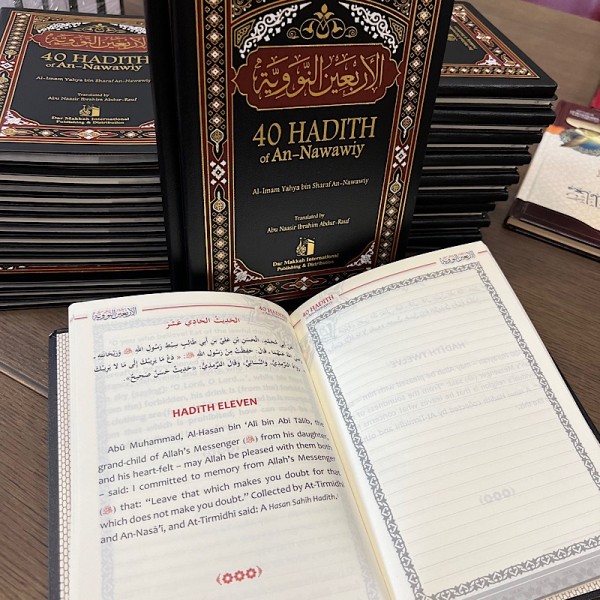 40 HADITH
of An-Nawawiy
Al-Imam Yahya bin Sharaf An-Nawawiy
Translated by
Abu Naasir Ibrahim Abdur-Rauf
Dar Makkah International
Publishing & Distribution
الأربعين النووية
40 HADITH
of An-Nawawiy
Al-Imam Yahya bin Sharaf An-Nawawiy
Translated by
Abu Naasir Ibrahim Abdur-Rauf
Dar Makkah International
Publishing & Distribution
الأربعين النووية
40 HADITH
الحديث الحادي عشر
أبي محمد، الحسن بن علي بن أبي طالب سبط رسول الله ﷺ وريحانته
الله عنهما، قال: حفظت من رسول الله ﷺ: «دع ما يريبك إلى ما لا يريبك
رواه الترمذي، والنسائي، وقال الترمذي: «حديث حسن صحيح».
HADITH ELEVEN
Abū Muhammad, Al-Hasan bin ‘Ali bin Abi Tālib, the
grand-child of Allah’s Messenger (ﷺ) from his daughter,
and his heart-felt – may Allah be pleased with them both
– said: I committed to memory from Allah’s Messenger
(ﷺ) that: “Leave that which makes you doubt for that
which does not make you doubt.” Collected by At-Tirmidhi
and An-Nasā’ī, and At-Tirmidhi said: A Hasan Sahih Hadith.
40 HADITH